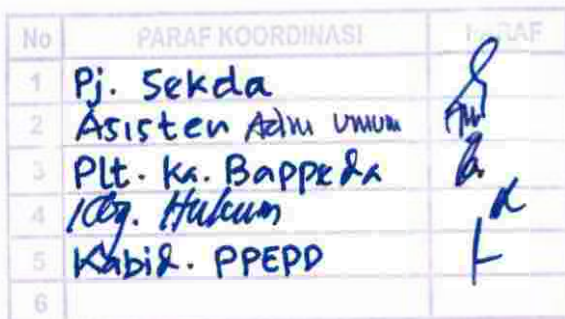 No PARAF KOORDINASI PARAF
1 Pj. Sekda
2 Asisten Adm Umum
3 Plt. Ka. Bappeda
4 Kbg. Hukum
5 Kabid. PPEPD
6